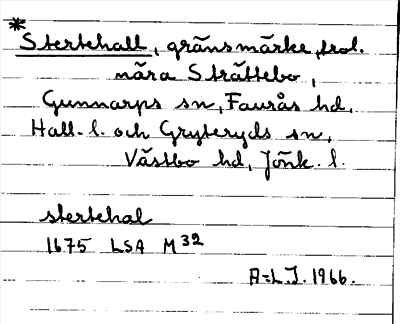 *
Stertehall, gränsmärke, trol.
nära Strättebo,
Gunnarps sn, Faurås hd,
Hall. l. och Gryteryds sn,
Västbo hd, Jönk. l.
stertehal
1675 LSA M 32
A-L.J. 1966.